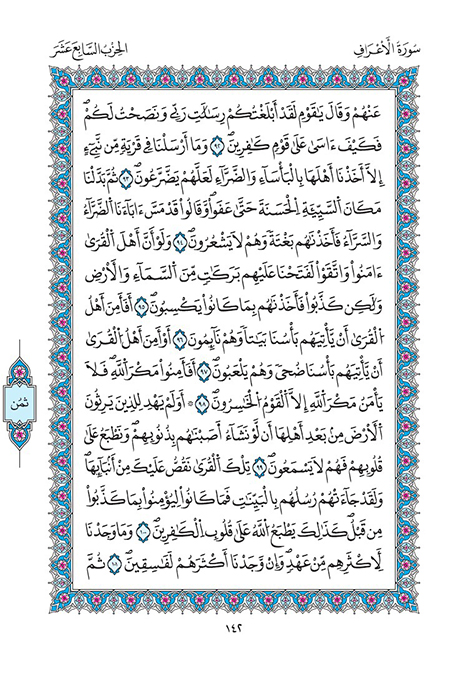 سُورَةُ الْأَعْرَافِ
الحِزْبُ السَّابِعَ عَشَرَ
عَنْهُمْ وَقَالَ يَٰقَوْمِ لَقَدْ أَبْلَغْتُكُمْ رِسَٰلَٰتِ رَبِّي وَنَصَحْتُ لَكُمْ
فَكَيْفَ ءَاسَىٰ عَلَىٰ قَوْمٍ كَٰفِرِينَ ٩٢ وَمَا أَرْسَلْنَا فِي قَرْيَةٍ مِّن نَّبِيٓءٍ
إِلَّا أَخَذْنَا أَهْلَهَا بِالْبَأْسَاءِ وَالضَّرَّاءِ لَعَلَّهُمْ يَضَّرَّعُونَ ٩٣ ثُمَّ بَدَّلْنَا
مَكَانَ السَّيِّئَةِ الْحَسَنَةَ حَتَّىٰ عَفَوا وَّقَالُوا قَدْ مَسَّ ءَابَاءَنَا الضَّرَّاءُ
وَالسَّرَّاءُ فَأَخَذْنَٰهُم بَغْتَةً وَهُمْ لَا يَشْعُرُونَ ٩٤ وَلَوْ أَنَّ أَهْلَ الْقُرَىٰ
ءَامَنُوا وَاتَّقَوْا لَفَتَحْنَا عَلَيْهِم بَرَكَٰتٍ مِّنَ السَّمَاءِ وَالْأَرْضِ
وَلَٰكِن كَذَّبُوا فَأَخَذْنَٰهُم بِمَا كَانُوا يَكْسِبُونَ ٩٥ أَفَأَمِنَ أَهْلُ
الْقُرَىٰ أَنْ يَأْتِيَهُم بَأْسُنَا بَيَٰتًا وَهُمْ نَائِمُونَ ٩٦ أَوْ أَمِنَ أَهْلُ الْقُرَىٰ
أَنْ يَأْتِيَهُم بَأْسُنَا ضُحًى وَهُمْ يَلْعَبُونَ ٩٧ أَفَأَمِنُوا مَكْرَ اللَّهِ فَلَا
يَأْمَنُ مَكْرَ اللَّهِ إِلَّا الْقَوْمُ الْخَٰسِرُونَ ٩٨ أَوَلَمْ يَهْدِ لِلَّذِينَ يَرِثُونَ
الْأَرْضَ مِن بَعْدِ أَهْلِهَا أَن لَّوْ نَشَاءُ أَصَبْنَٰهُم بِذُنُوبِهِمْ وَنَطْبَعُ عَلَىٰ
قُلُوبِهِمْ فَهُمْ لَا يَسْمَعُونَ ٩٩ تِلْكَ الْقُرَىٰ نَقُصُّ عَلَيْكَ مِنْ أَنبَائِهَا
وَلَقَدْ جَاءَتْهُمْ رُسُلُهُم بِالْبَيِّنَٰتِ فَمَا كَانُوا لِيُؤْمِنُوا بِمَا كَذَّبُوا
مِن قَبْلُ كَذَٰلِكَ يَطْبَعُ اللَّهُ عَلَىٰ قُلُوبِ الْكَٰفِرِينَ ١٠٠ وَمَا وَجَدْنَا
لِأَكْثَرِهِم مِّنْ عَهْدٍ وَإِن وَجَدْنَا أَكْثَرَهُمْ لَفَٰسِقِينَ ١٠١ ثُمَّ
ثُمُن
١٤٢